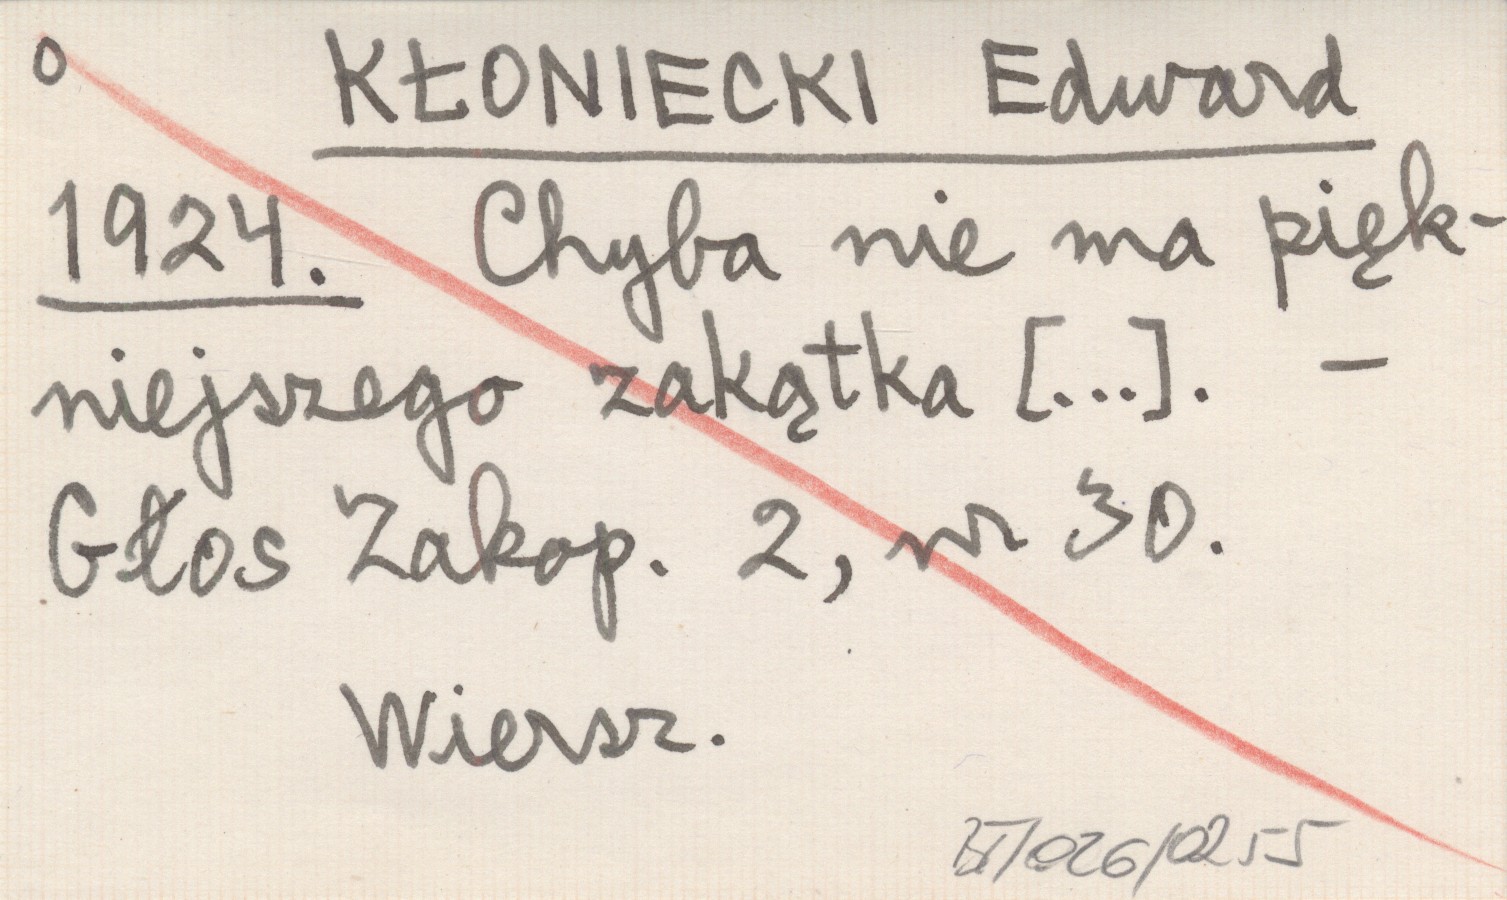 o KŁONIECKI Edward
1924. Chyba nie ma pięk-
niejszego zakątka [...]. –
Głos Zakop. 2, nr 30.
Wiersz.
/026/0255